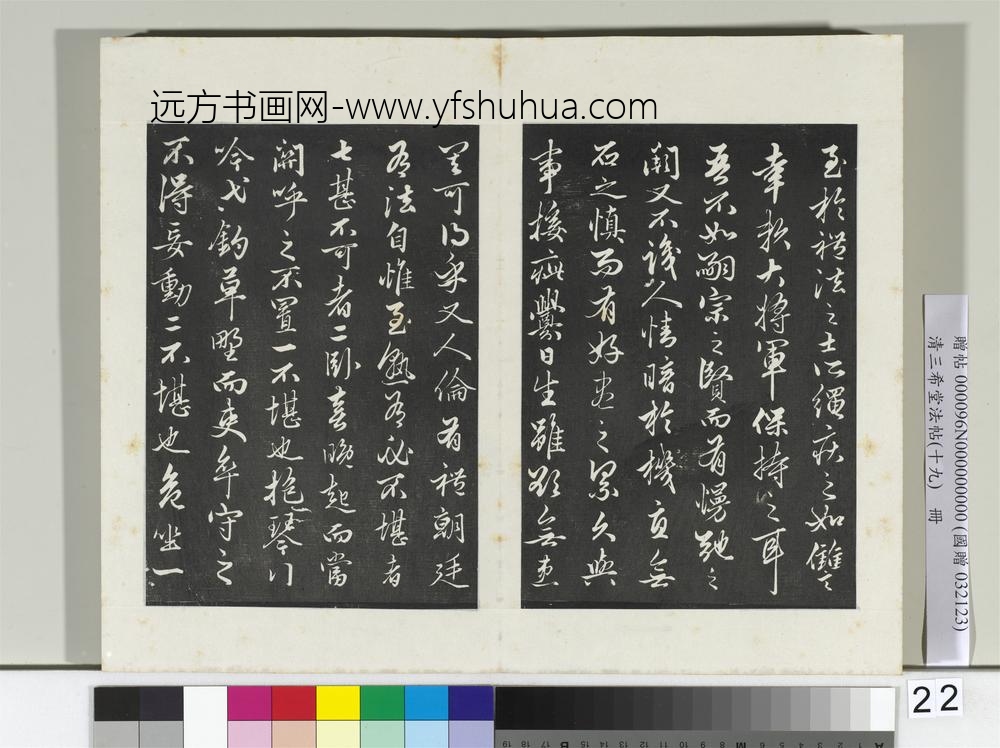 远方书画网-www.yfshuhua.com
至於禮法之士所繩疾之如讎
幸賴大將軍保持之耳
吾不如嗣宗之賢而有慢弛之
闕又不識人情暗於機宜無
石之慎而有好盡之累久與
事接疵釁日生雖欲無患
其可得乎又人倫有禮朝廷
有法自惟至熟有必不堪者
七甚不可者二卧喜晚起而當
關呼之不置一不堪也抱琴行
吟弋釣草野而吏卒守之
不得妄動二不堪也危坐一
贈帖 000096N000000000 (國贈 032123)
清三希堂法帖(十九) 冊
22